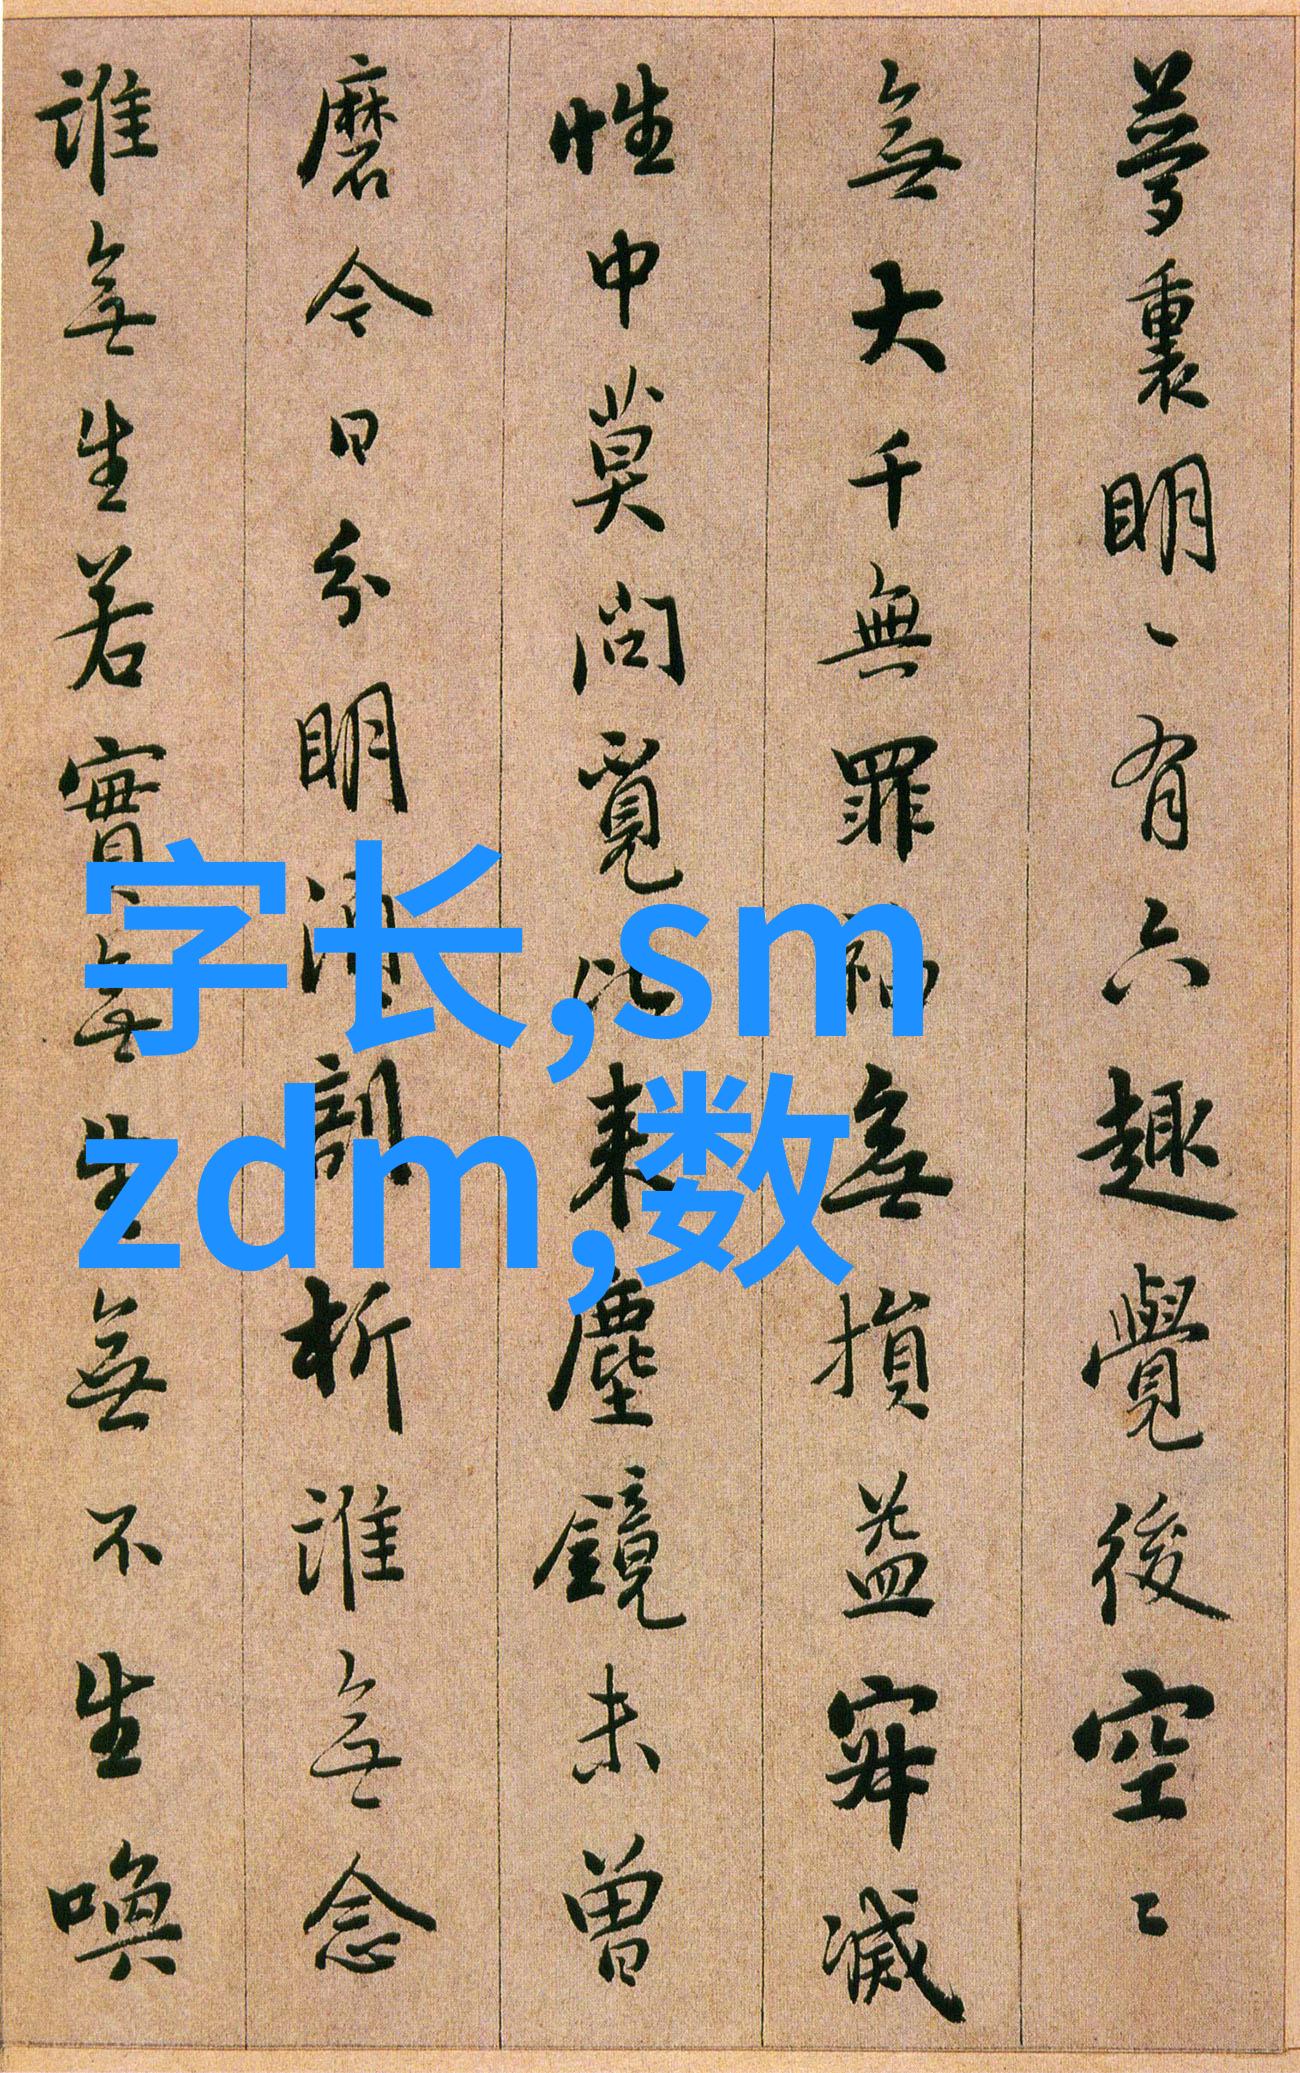 夢裏明丶有六趣覺後空〻
無大千無罪福無損益寂滅
性中莫問覓比来塵鏡未曾
磨今日分明須剖析誰無念
誰無生若實無生無不生喚
字长,sm
zdm,数